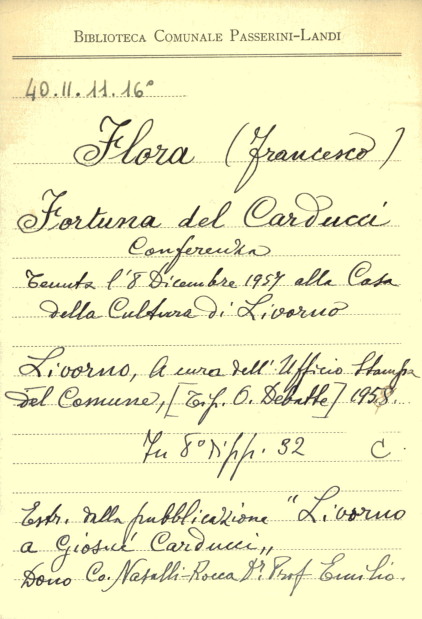 BIBLIOTECA COMUNALE PASSERINI-LANDI
40.II.11.16°
Flora (Francesco)
Fortuna del Carducci
Conferenza
Tenuta l'8 Dicembre 1957 alla Casa
della Cultura di Livorno
Livorno, A cura dell'Ufficio Stampa
del Comune, [Tip. O. Debatte] 1958.
In 8° di pp. 32 C
Estr. dalla pubblicazione "Livorno
a Giosuè Carducci„
Dono Co. Nasalli-Rocca Dr. Prof Emilio.